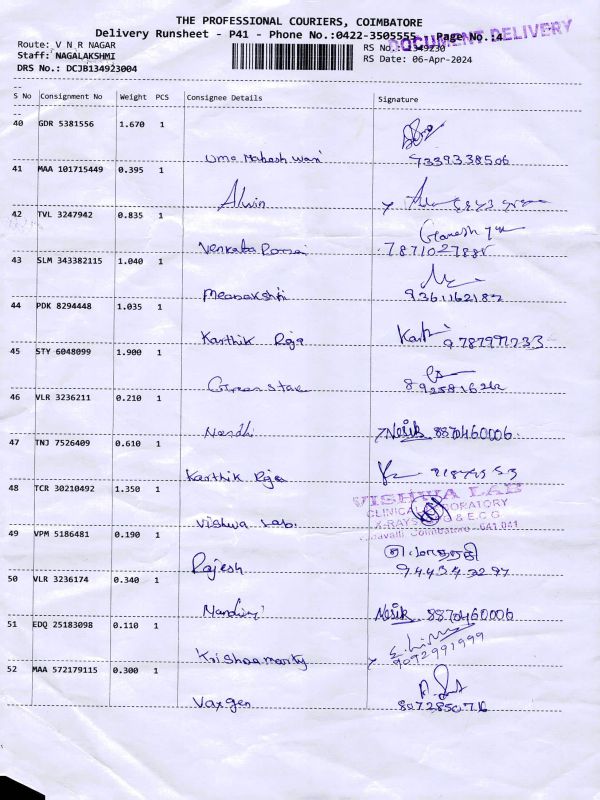 THE PROFESSIONAL COURIERS, COIMBATORE
Delivery Runsheet - P41 - Phone No.:0422-3505555 Page No.:4
DOCUMENT DELIVERY
Route: V N R NAGAR RS No.: 1349230
Staff: NAGALAKSHMI RS Date: 06-Apr-2024
DRS No.: DCJB134923004
S No Consignment No Weight PCS Consignee Details Signature
40 GDR 5381556 1.670 1
Uma Maheshwari 7339338506
41 MAA 101715449 0.395 1
Alwin
42 TVL 3247942 0.835 1
Ganesh
Venkata 7871027885
43 SLM 343382115 1.040 1
Meenakshi 9361162182
44 PDK 8294448 1.035 1
Karthik Raja
45 STY 6048099 1.900 1
Green star
46 VLR 3236211 0.210 1
Nandhi 8870460006
47 TNJ 7526409 0.610 1
Karthik Raja
48 TCR 30210492 1.350 1
VISHWA LAB
CLINICAL LABORATORY
X-RAYS & E C G
Coimbatore - 641 041
Vishwa Lab.
49 VPM 5186481 0.190 1
Rajesh 9443473297
50 VLR 3236174 0.340 1
8870460006
51 EDQ 25183098 0.110 1
Krishnamorty 9092991999
52 MAA 572179115 0.300 1
Vaxgen 8072850716